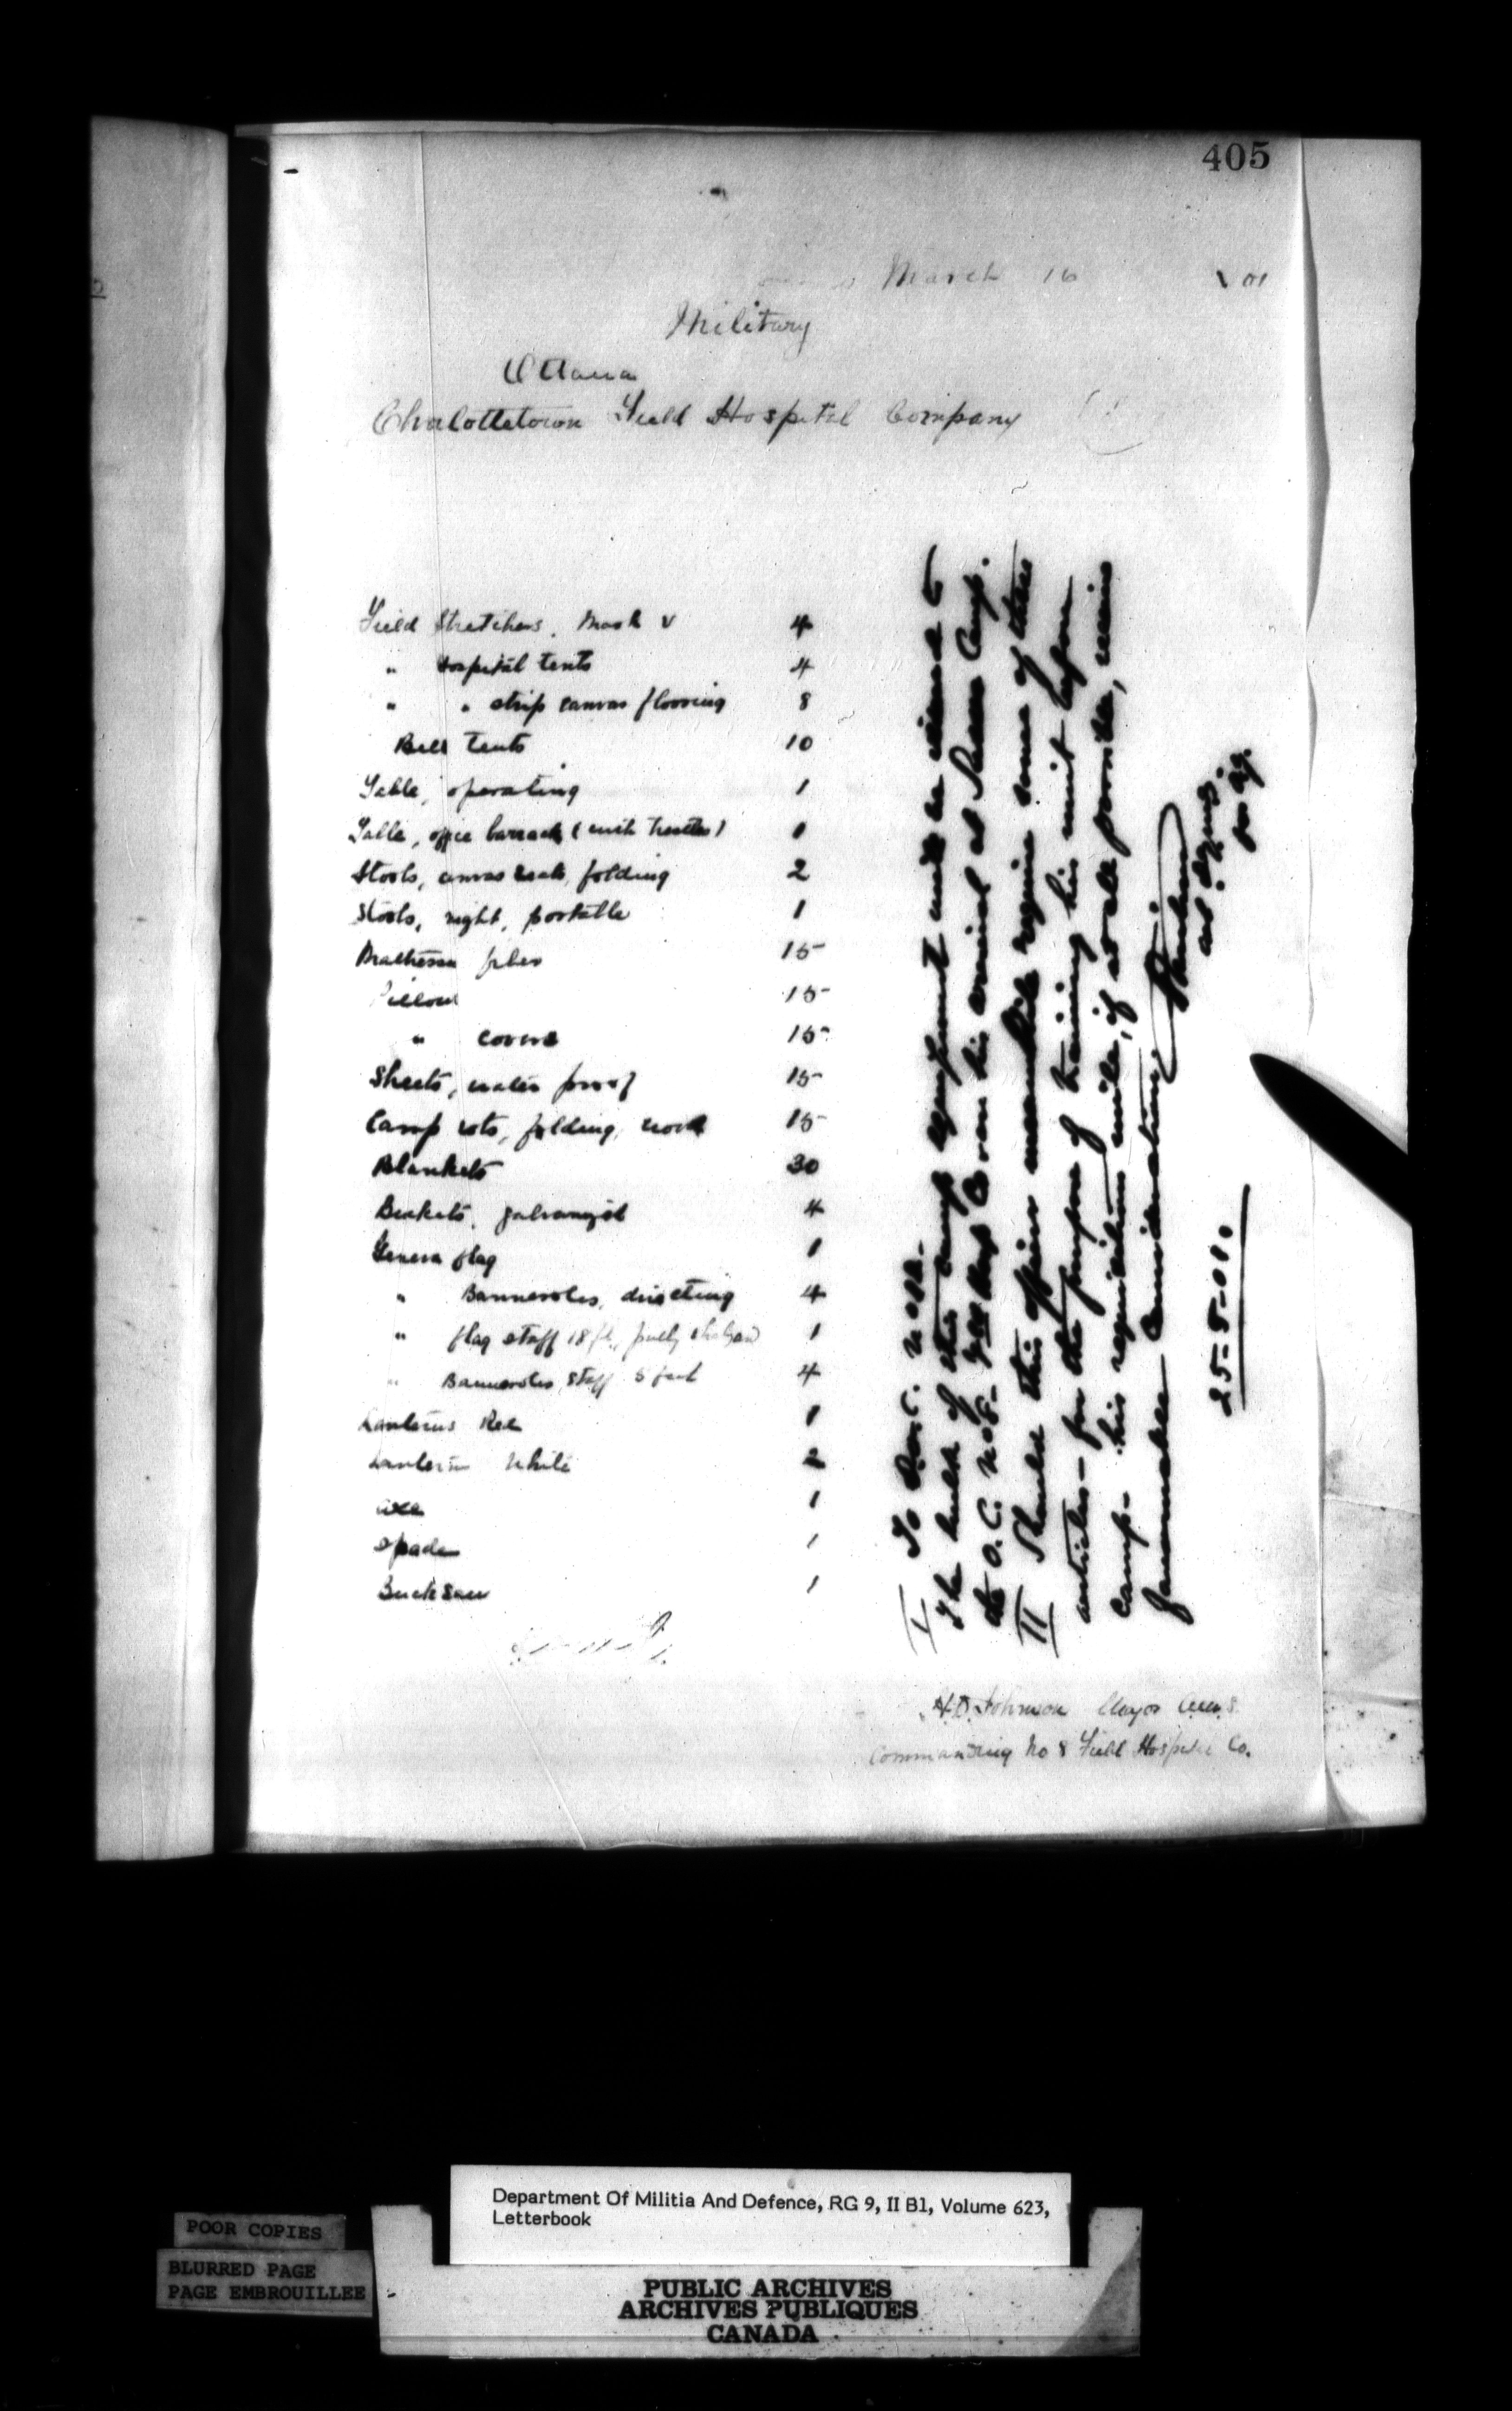 405
March 16 01
Military
Ottawa
Chalottetown Field Hospital Company
Field Stretchers, Mark V 4
" Hospital tents 4
" " strip canvas flooring 8
Bell tents 10
Table, operating 1
Table, office barrack (with trestles) 1
Stools, canvas seats, folding 2
Stools, night, portable 1
Mattresses 15
Pillows 15
" covers 15
Sheets, water proof 15
Camp cots, folding, wood 15
Blankets 30
Buckets, galvanized 4
Geneva flag 1
" Banneroles, directing 4
" flag staff 18 ft., 1
" Banneroles, staff 5 feet 4
Lanterns Red 1
Lantern White 2
Axe 1
Spade 1
Buck saw 1
I To D.O.C.
The bulk of this camp equipment will be issued to
the O.C. No 8 on his arrival at Sussex Camp.
II Should this officer meanwhile require some of these
articles - for the purpose of training his unit before
Camp - his requisition will, if at all possible, receive
favourable consideration.
25-5-01.
H.D. Johnson Major A.M.S.
Commanding No 8 Field Hospital Co.
Department Of Militia And Defence, RG 9, II B1, Volume 623,
Letterbook
POOR COPIES
BLURRED PAGE
PAGE EMBROUILLEE
PUBLIC ARCHIVES
ARCHIVES PUBLIQUES
CANADA